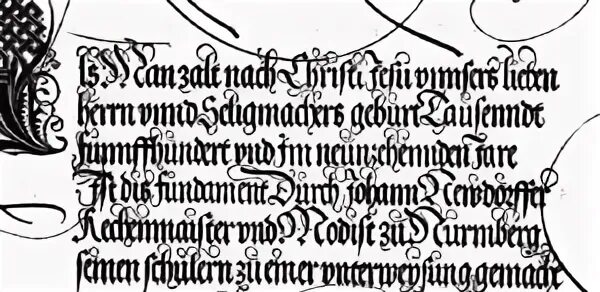 ls Man zalt nach Christi Jesu vnnsers lieben
herrn vnnd Seligmachers geburt Tausenndt
Funnffhundert vnd Im neunzehennden Jare
Ist dis fundament Durch Johann Newdorffer
Rechenmaister vnd Modist zu Nurmberg
seinen schulern zu einer vnterweysung gemacht